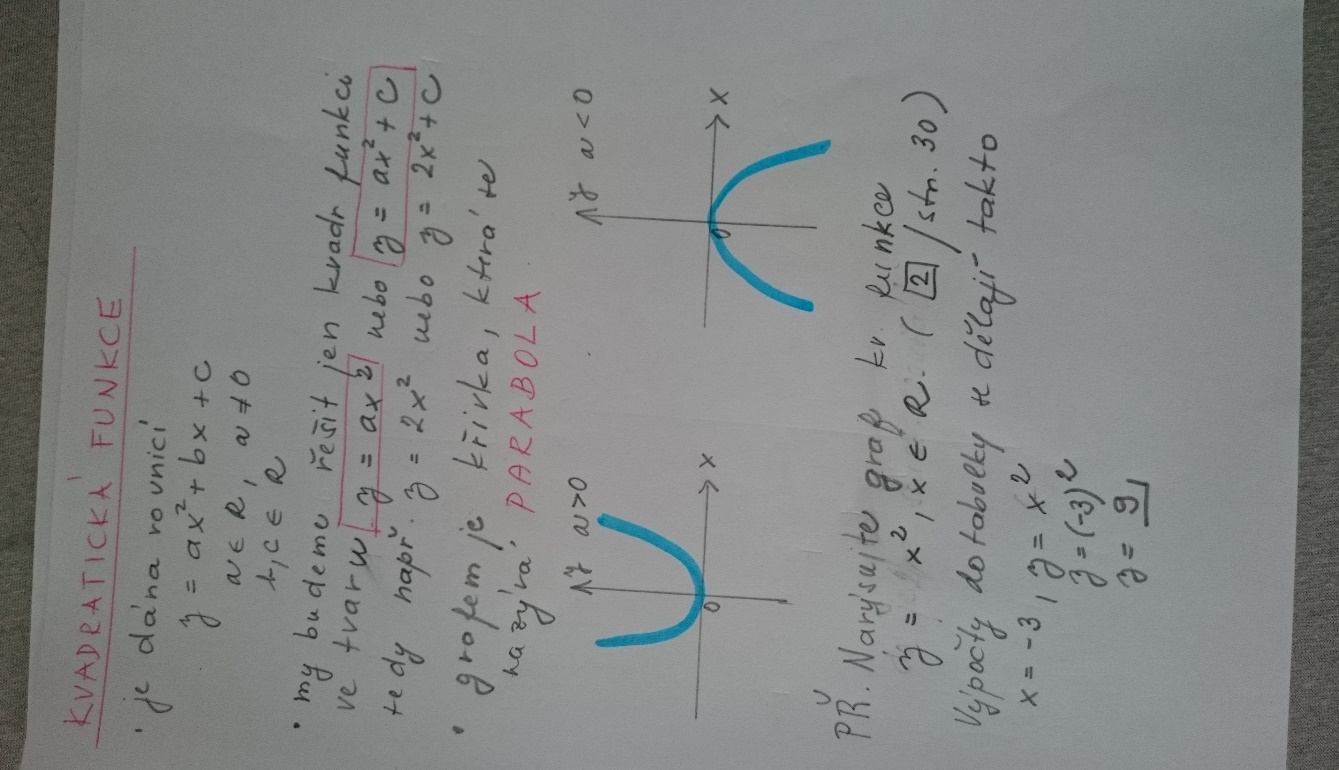 KVADRATICKÁ FUNKCE
· je dána rovnicí
y = ax² + bx + c
a ∈ R, a ≠ 0
b, c ∈ R
· my budeme řešit jen kvadr funkci
ve tvaru y = ax² nebo y = ax² + c
tedy např. y = 2x² nebo y = 2x² + c
· grafem je křivka, která se
nazývá PARABOLA
y a > 0
x
0
y a < 0
x
0
PŘ. Narýsujte graf kv. funkce
y = x², x ∈ R. ( 2 / str. 30 )
Výpočty do tabulky se dělají takto
x = -3, y = x²
y = (-3)²
y = 9